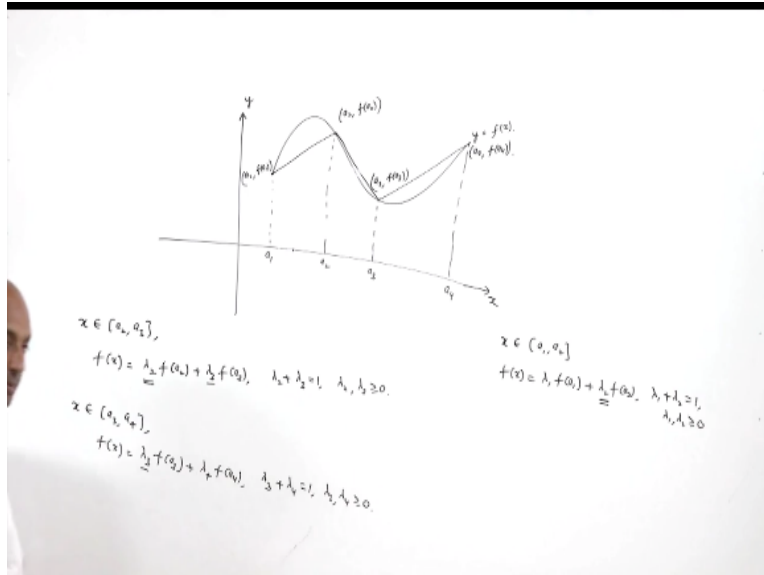 y
(a₂, f(a₂))
y = f(x).
(a₁, f(a₁))
(a₄, f(a₄)).
(a₃, f(a₃))
a₁
a₂
a₃
a₄
x
x ∈ [a₂, a₃],
f(x) = λ₂ f(a₂) + λ₃ f(a₃), λ₂ + λ₃ = 1, λ₂, λ₃ ≥ 0.
x ∈ [a₃, a₄],
f(x) = λ₃ f(a₃) + λ₄ f(a₄), λ₃ + λ₄ = 1, λ₃, λ₄ ≥ 0.
x ∈ [a₁, a₂]
f(x) = λ₁ f(a₁) + λ₂ f(a₂), λ₁ + λ₂ = 1,
λ₁, λ₂ ≥ 0